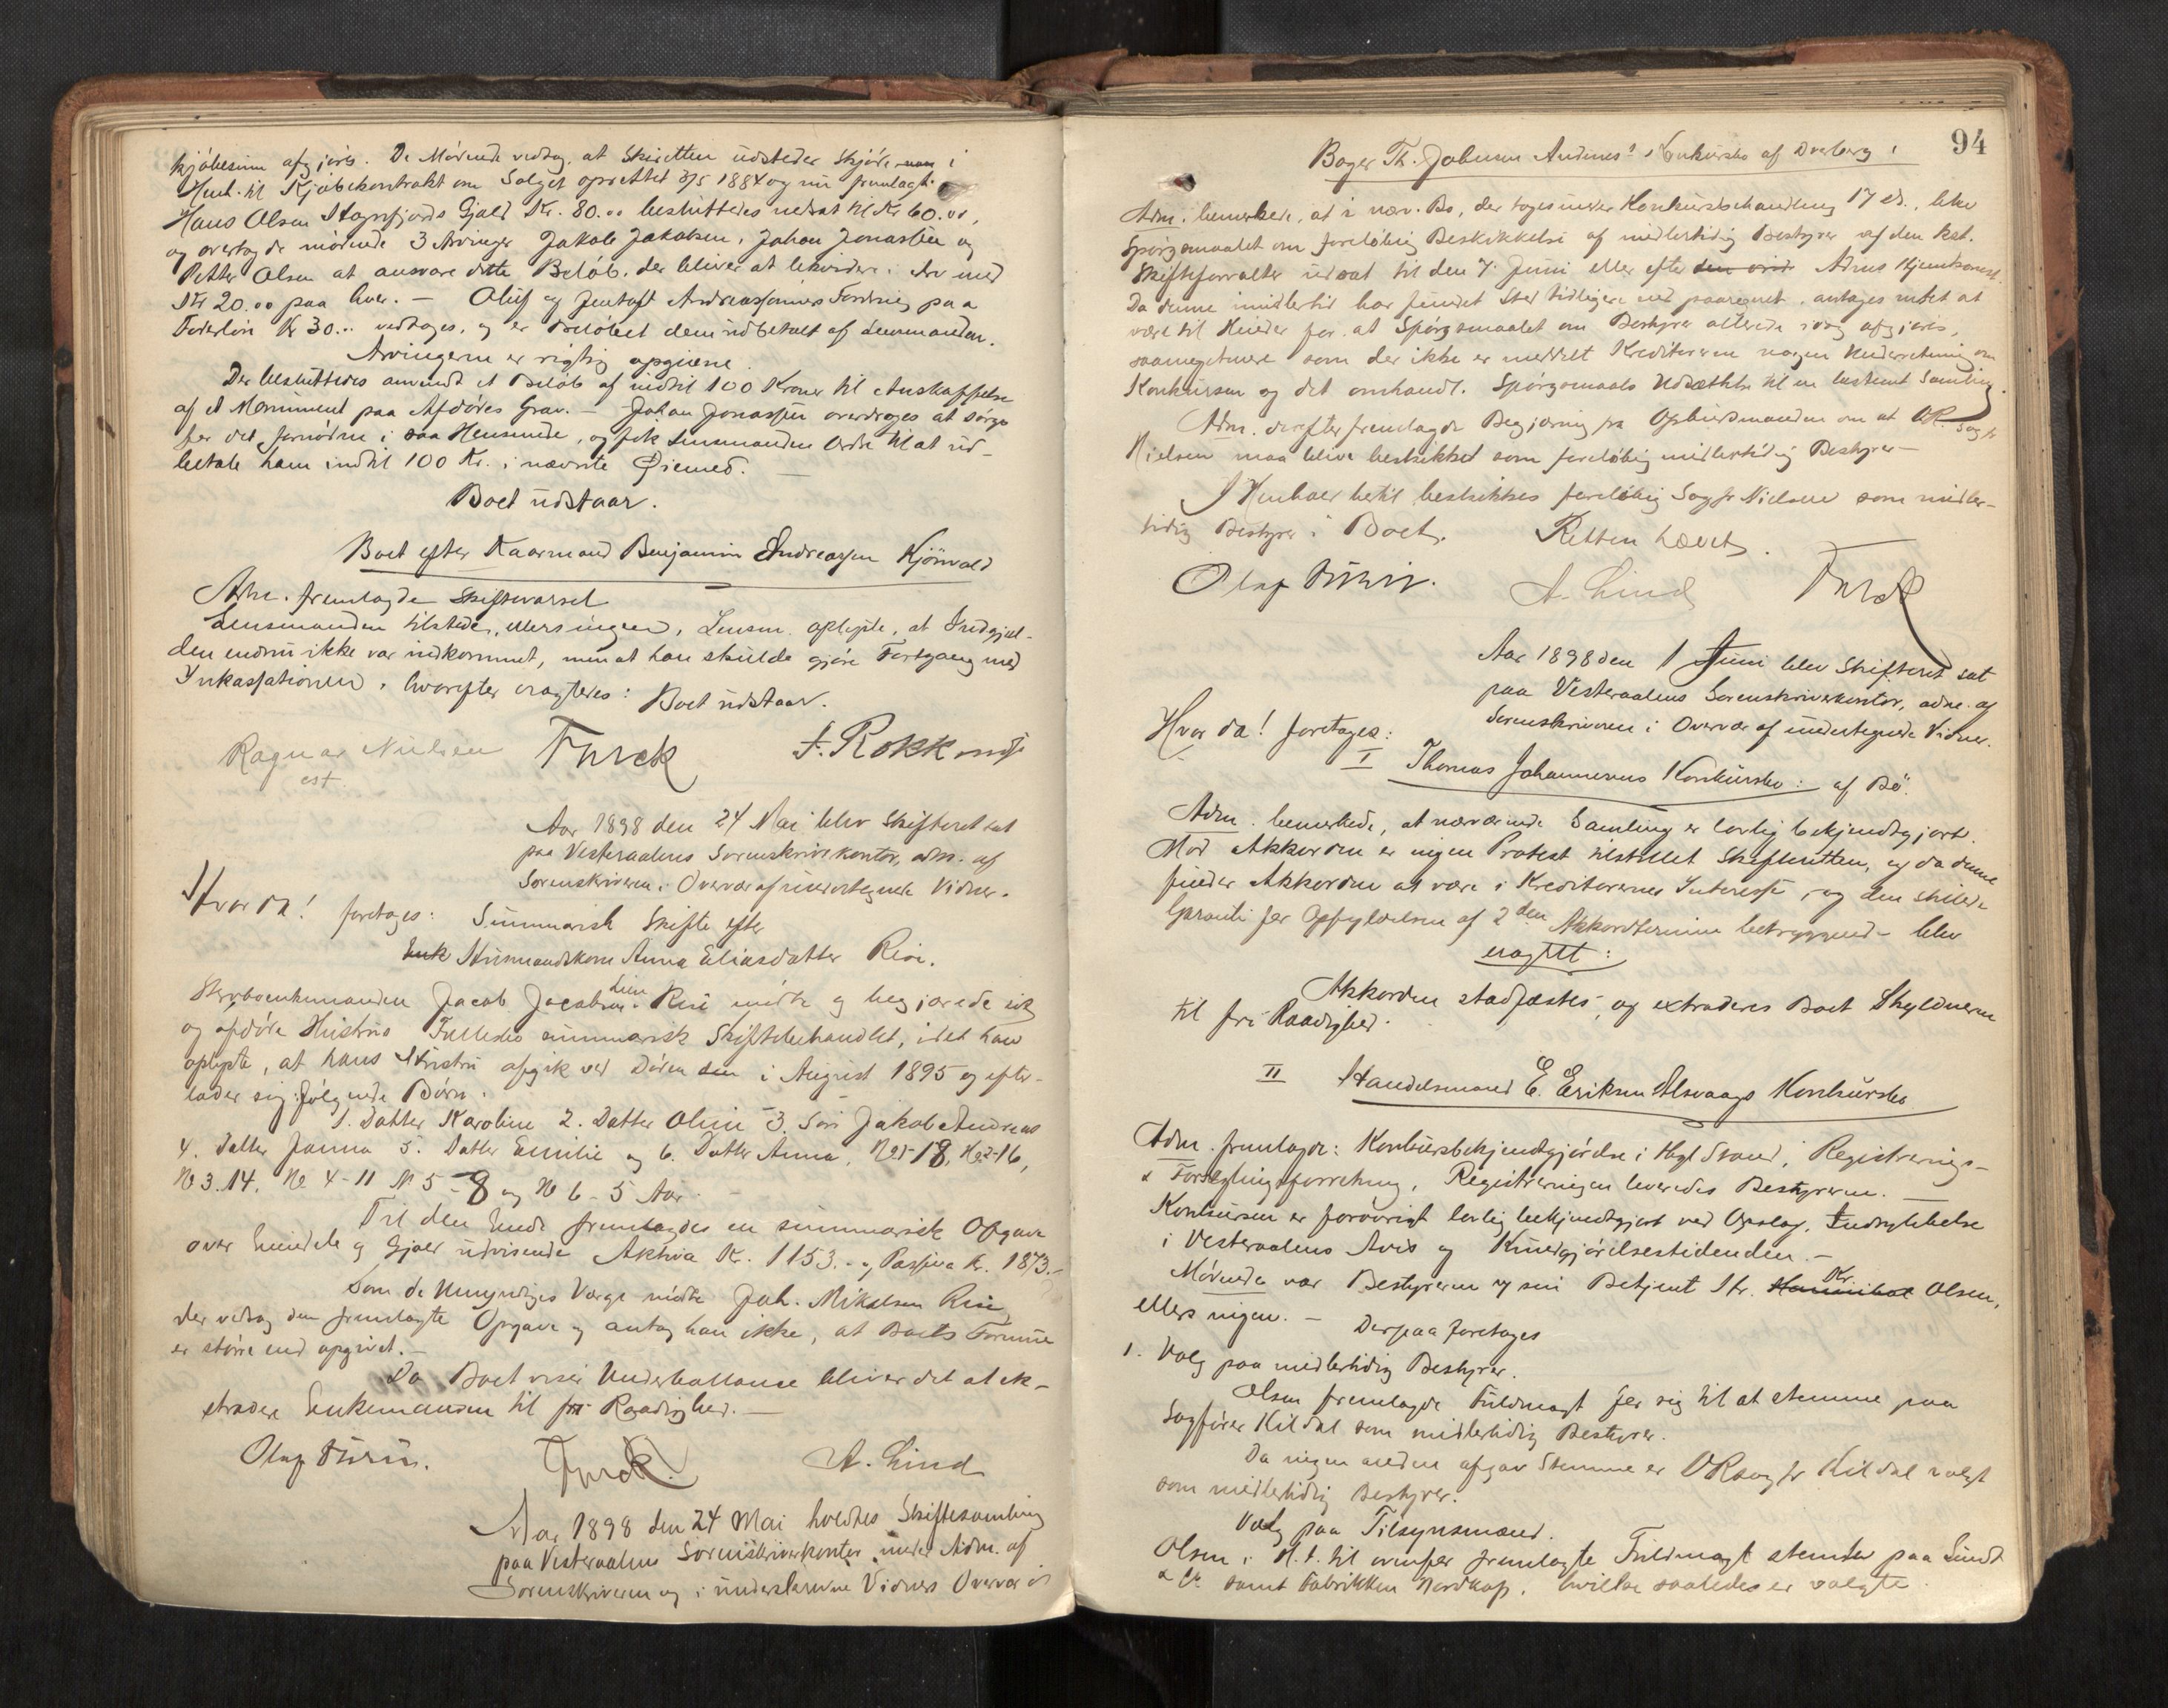 kjöbesum afgjöres. De Mödende vedtog, at Skifteretten udsteder Skjöde i
Henh. til Kjöbekontrakt om Salget oprettet 3/5 1884 og nu fremlagt.
Hans Olsen Stognfjords Gjæld Kr. 80.00 besluttedes nedsat til Kr 60.00,
og overtog de mödende 3 Arvinger Jakob Jakobsen, Johan Jonassen og
Petter Olsen at ansvare dette Belöb, der bliver at likvidere i Arv med
Kr 20.00 paa hver. — Oluf og Jentoft Andreassönners Fordring paa
Foderlön Kr 30.. vedtoges, og er Belöbet dem udbetalt af Lensmanden.
Arvingerne er rigtig opgivne.
Der besluttedes anvendt et Belöb af indtil 100 Kroner til Anskaffelse
af et Monument paa Afdödes Grav. — Johan Jonassen overdroges at sörge
for det fornödne i saa Henseende, og fik Lensmanden Ordre til at ud-
betale ham indtil 100 Kr. i nævnte Öiemed. —
Boet udstaar.
Boet efter Kaarmand Benjamin Andreassen Kjönvold
Adm. fremlagde Skiftevarsel
Lensmanden tilstede, ellers ingen. Lensm. oplyste, at Indgjæl-
den endnu ikke var indkommet, men at han skulde gjöre Fortgang med
Inkassationen, hvorefter eragtedes: Boet udstaar.
Ragnar Nielsen Turck A. Rokkones
est.
Aar 1898 den 24 Mai blev Skifteret sat
paa Vesteraalens Sorenskriverkontor, adm. af
Sorenskriveren i Overvær af undertegnede Vidner.
Hvor da! foretoges: Summarisk Skifte efter
Enk Husmandskone Anna Eliasdatter Risö.
Strandsidder Enkemanden Jacob Jacobsen Risö mödte og begjærede sit
og afdöde Hustrus Fællesbo summarisk Skiftebehandlet, idet han
oplyste, at hans Hustru afgik ved Döden den i August 1895 og efter-
lader sig fölgende Börn:
1. Datter Karoline 2. Datter Oline 3. Sön Jakob Andreas
4. Datter Janna 5. Datter Emilie og 6. Datter Anna. No 1-18, No 2-16,
No 3.14, No 4-11 No 5-8 og No 6-5 Aar.
Til den Ende fremlagdes en summarisk Opgave
over Eiendele og Gjæld udvisende Aktiva Kr. 1153.- og Passiva Kr. 1873.-
Som de Umyndiges Værge mödte Joh. Mikalsen Risö,
der vedtog den fremlagte Opgave og antog han ikke, at Boets Formue
er större end opgivet. —
Da Boet viser Underballance bliver det at ek-
stradere Enkemanden til fri Raadighed. —
Olaf Turck A. Lind
Aar 1898 den 24 Mai holdtes Skiftesamling
paa Vesteraalens Sorenskriverkontor under Adm. af
Sorenskriveren og i underskrevne Vidners Overvær i
94
Bager Th. Johnsen Andenes' Konkursbo af Dverberg
Adm. bemerkede, at i nærv. Bo, der toges under Konkursbehandling 17 ds., blev
Spörgsmaalet om forelöbig Beskikkelse af midlertidig Bestyrer af den kst.
Skifteforvalter udsat til den 7. Juni eller efter den ordi Adms Hjemkomst.
Da denne imidlertid har fundet Sted tidligere end paaregnet, antages intet at
være til Hinder for at Spörgsmaalet om Bestyrer allerede idag afgjöres,
saameget mere som der ikke er meddelt Kreditorerne nogen Underretning om
Konkursen og det omhandl. Spörgsmaals Udsættelse til en bestemt Samling.
Adm. derefter fremlagde Begjæring fra Opbudsmanden om at OR. Sagf.
Nielsen maa blive beskikket som forelöbig midlertidig Bestyrer —
I Henhold hertil beskikkes forelöbig Sagf. Nielsen som midler-
tidig Bestyrer i Boet. Retten hævet.
Olaf A. Lind Turck
Aar 1898 den 1 Juni blev Skifteret sat
paa Vesteraalens Sorenskriverkontor, adm. af
Sorenskriveren i Overvær af undertegnede Vidner.
Hvor da! foretoges:
I Thomas Johannesens Konkursbo: af Bö.
Adm. bemerkede, at nærværende Samling er lovlig bekjendtgjort.
Mod Akkorden er ingen Protest tilstillet Skifteretten, og da denne
finder Akkorden at være i Kreditorernes Interesse, og den stillede
Garanti for Opfyldelsen af 2den Akkordtermin betryggende blev
eragtet:
Akkorden stadfæstes, og extraderes Boet Skyldneren
til fri Raadighed.
II Handelsmand E. Eriksen Alsvaags Konkursbo
Adm. fremlagde: Konkursbekjendtgjörelse i Hgl Stand, Registrerings-
& Forseglingsforretning, Registreringen leveredes Bestyreren. —
Konkursen er forövrigt lovlig bekjendtgjort ved Opslag, Indrykkelse
i Vesteraalens Avis og Kundgjörelsestidenden. —
Mödende var Bestyreren ved sin Betjent Hr. Hannibal Kr. Olsen,
ellers ingen. — Derpaa foretoges
1. Valg paa midlertidig Bestyrer.
Olsen fremlagde Fuldmagt for sig til at stemme paa
Sagförer Kildal som midlertidig Bestyrer.
Da ingen anden afgav Stemme er ORsagf. Kildal valgt
som midlertidig Bestyrer.
Valg paa Tilsynsmænd.
Olsen i H. t. til ovenfor fremlagte Fuldmagt stemte paa Lindt
& Co samt Fabrikken Nordkap, hvilke saaledes er valgte